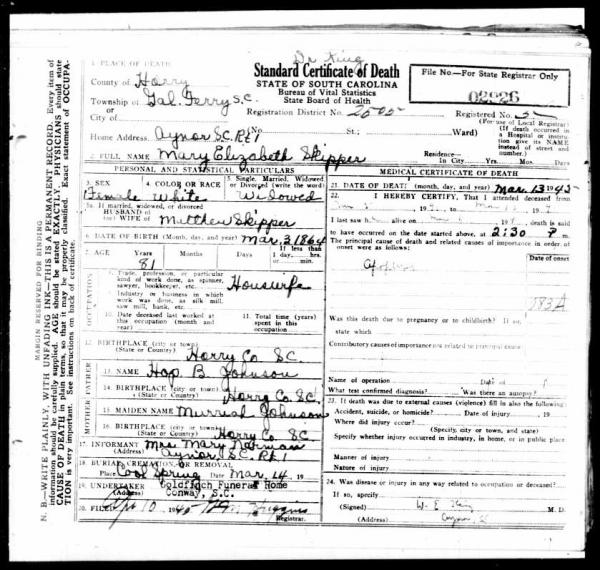 Dr King
Standard Certificate of Death
STATE OF SOUTH CAROLINA
Bureau of Vital Statistics
State Board of Health
File No.—For State Registrar Only
1. PLACE OF DEATH
County of Horry
Township of Gal. Ferry S.C.
City of
Registration District No. 2505
Registered No.
(For use of Local Registrar)
Home Address Aynor S.C. Rt 1 No. St.; Ward)
(If death occurred in a Hospital or institution give its NAME instead of street and number.)
2. FULL NAME Mary Elizabeth Skipper
Residence— In City Yrs. Mos. Days
PERSONAL AND STATISTICAL PARTICULARS
3. SEX Female
4. COLOR OR RACE White
5. Single, Married, Widowed or Divorced (write the word) Widowed
5a. If married, widowed, or divorced
HUSBAND of
(or) WIFE of Matthew Skipper
6. DATE OF BIRTH (Month, day, and year) Mar. 3 1864
7. AGE Years 81 Months Days If less than 1 day, hrs. or min.
OCCUPATION
8. Trade, profession, or particular kind of work done, as spinner, sawyer, bookkeeper, etc. Houswife
9. Industry or business in which work was done, as silk mill, saw mill, bank, etc.
10. Date deceased last worked at this occupation (month and year)
11. Total time (years) spent in this occupation
12. BIRTHPLACE (city or town) (State or Country) Horry Co. S.C.
FATHER
13. NAME Hap. B. Johnson
14. BIRTHPLACE (city or town) (State or Country) Horry Co. S.C.
MOTHER
15. MAIDEN NAME Murriah Johnson
16. BIRTHPLACE (city or town) (State or Country) Horry Co S.C.
17. INFORMANT Mrs Mary
(Address) Aynor S.C. Rt 1
18. BURIAL CREMATION OR REMOVAL
Place Cool Spring Date Mar. 14 19
19. UNDERTAKER Goldfinch Funeral Home
(Address) Conway, S.C.
20. FILED Apr 10 1945
Registrar.
MEDICAL CERTIFICATE OF DEATH
21. DATE OF DEATH (month, day, and year) Mar. 13 1945
22. I HEREBY CERTIFY, That I attended deceased from
I last saw h alive on 19 death is said
to have occurred on the date stated above, at 2:30 P.
The principal cause of death and related causes of importance in order of onset were as follows:
Date of onset
Was death due to pregnancy or to childbirth? If so,
state which
Contributory causes of importance not related to principal cause:
Name of operation Date of
What test confirmed diagnosis? Was there an autopsy?
23. If death was due to external causes (violence) fill in also the following:
Accident, suicide, or homicide? Date of injury , 19
Where did injury occur?
(Specify city or town, and state)
Specify whether injury occurred in industry, in home, or in public place
Manner of injury
Nature of injury
24. Was disease or injury in any way related to occupation or deceased?
If so, specify
(Signed) W. E. King M. D.
(Address)
MARGIN RESERVED FOR BINDING
N. B.—WRITE PLAINLY, WITH UNFADING INK—THIS IS A PERMANENT RECORD. Every item of
information should be carefully supplied. AGE should be stated EXACTLY. PHYSICIANS should state
CAUSE OF DEATH in plain terms, so that it may be properly classified. Exact statement of OCCUPA-
TION is very important. See instructions on back of certificate.